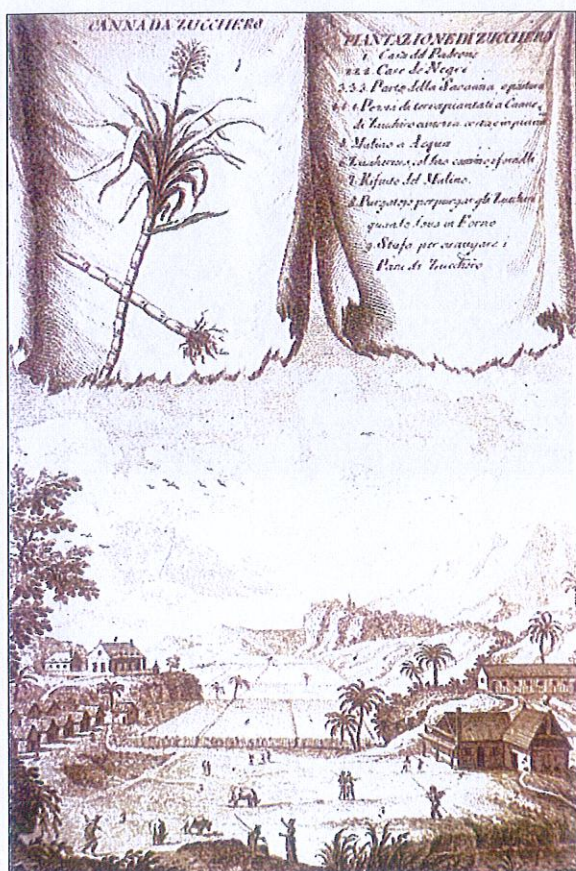 CANNA DA ZUCCHERO
PIANTAZIONE DI ZUCCHERO
1. Casa del Padrone
2.2.2. Case de Negri
3.3.3. Parte della Savanna, o pastura
4.4.4. Pezzi di terra piantati a Canne
di Zucchero
5. Mulino a Acqua
col suo camino
7. Rifiuto del Mulino.
8. Purgatojo per purgar gli Zuccheri
quanto in Forno
9. Stufa per asciugare i
Pani di Zucchero